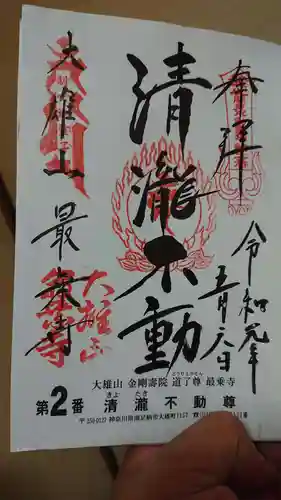 奉拝
令和元年
五月六日
清瀧不動
大雄山
最乗寺
大雄山
大雄山 金剛壽院 道了尊 最乗寺
どうりょうそん
きよ たき
第2番 清瀧不動尊
〒250-0127 神奈川県南足柄市大雄町1157 ☎